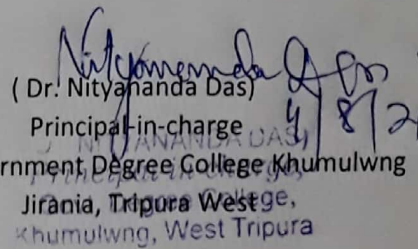 Nityananda Das
( Dr. Nityananda Das)
4/8/2
Principal-in-charge
rnment Degree College Khumulwng
Jirania, Tripura West
Khumulwng, West Tripura